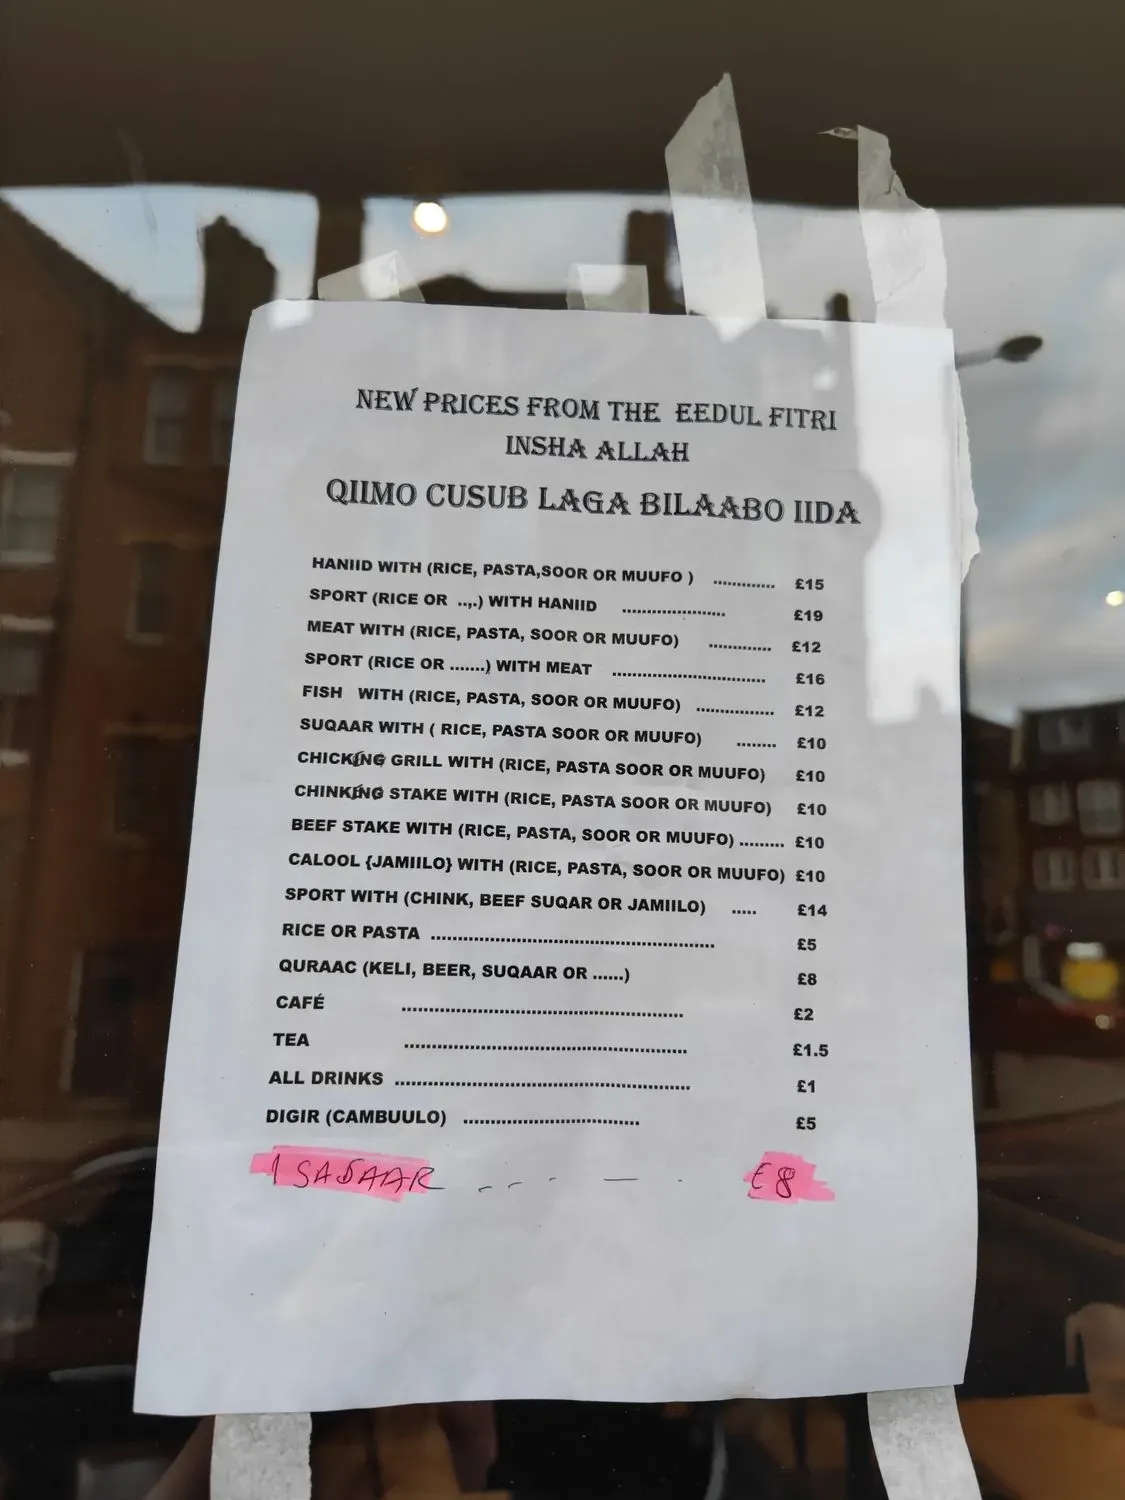 NEW PRICES FROM THE EEDUL FITRI
INSHA ALLAH
QIIMO CUSUB LAGA BILAABO IIDA
HANIID WITH (RICE, PASTA,SOOR OR MUUFO ) ............. £15
SPORT (RICE OR ..,.) WITH HANIID ...................... £19
MEAT WITH (RICE, PASTA, SOOR OR MUUFO) ............. £12
SPORT (RICE OR .......) WITH MEAT ................................ £16
FISH WITH (RICE, PASTA, SOOR OR MUUFO) ................ £12
SUQAAR WITH ( RICE, PASTA SOOR OR MUUFO) ........ £10
CHICKING GRILL WITH (RICE, PASTA SOOR OR MUUFO) £10
CHINKING STAKE WITH (RICE, PASTA SOOR OR MUUFO) £10
BEEF STAKE WITH (RICE, PASTA, SOOR OR MUUFO) ......... £10
CALOOL {JAMIILO} WITH (RICE, PASTA, SOOR OR MUUFO) £10
SPORT WITH (CHINK, BEEF SUQAR OR JAMIILO) ..... £14
RICE OR PASTA ............................................................ £5
QURAAC (KELI, BEER, SUQAAR OR ......) £8
CAFÉ ............................................................ £2
TEA ............................................................ £1.5
ALL DRINKS .............................................................. £1
DIGIR (CAMBUULO) ..................................... £5
1 SABAAR - - - - — . £8